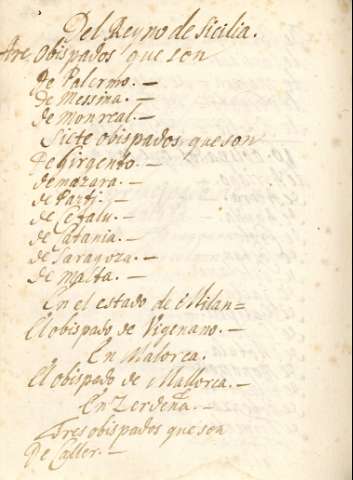 Del Reyno de Sicilia.
Arçobispados que son
De Palermo. —
de Messina. —
de Monreal. —
Siete obispados que son
De Girgento. —
de mazara. —
de Patti. —
de Cefalu. —
de Catania. —
de Saragoza. —
de Malta. —
En el estado de Milan =
El obispado de Vigenano. —
En Malorca.
El obispado de Mallorca. —
En Zerdeña. —
Tres obispados que son
De Caller. —